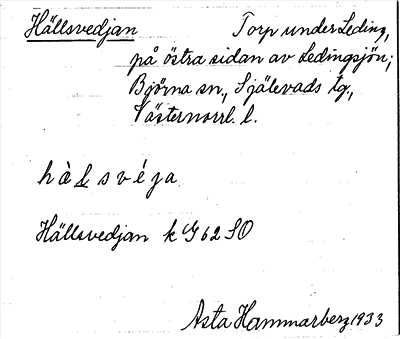 Hällsvedjan Torp under Leding,
på östra sidan av Ledingsjön;
Björna sn., Själevads tg.,
Västernorrl. l.
hàlsvéja
Hällsvedjan k G 62 SO
Asta Hammarberg 1933